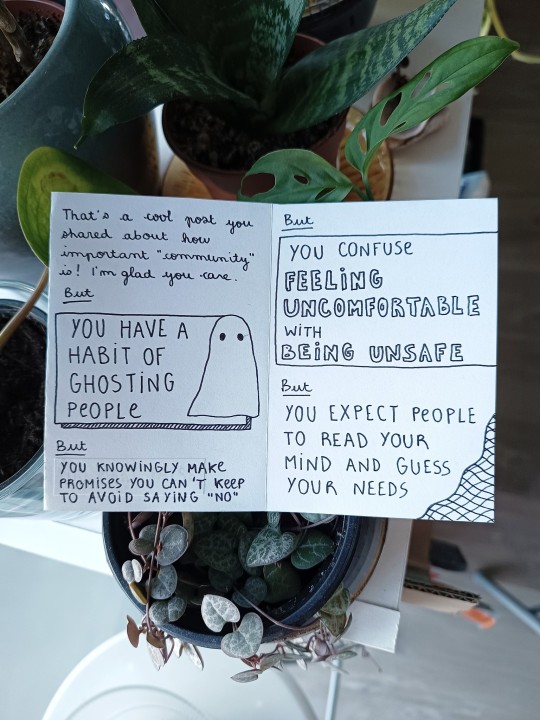 That's a cool post you
shared about how
important "community"
is! I'm glad you care.
But
YOU HAVE A
HABIT OF
GHOSTING
PEOPLE
But
YOU KNOWINGLY MAKE
PROMISES YOU CAN'T KEEP
TO AVOID SAYING "NO"
But
YOU CONFUSE
FEELING
UNCOMFORTABLE
WITH
BEING UNSAFE
But
YOU EXPECT PEOPLE
TO READ YOUR
MIND AND GUESS
YOUR NEEDS